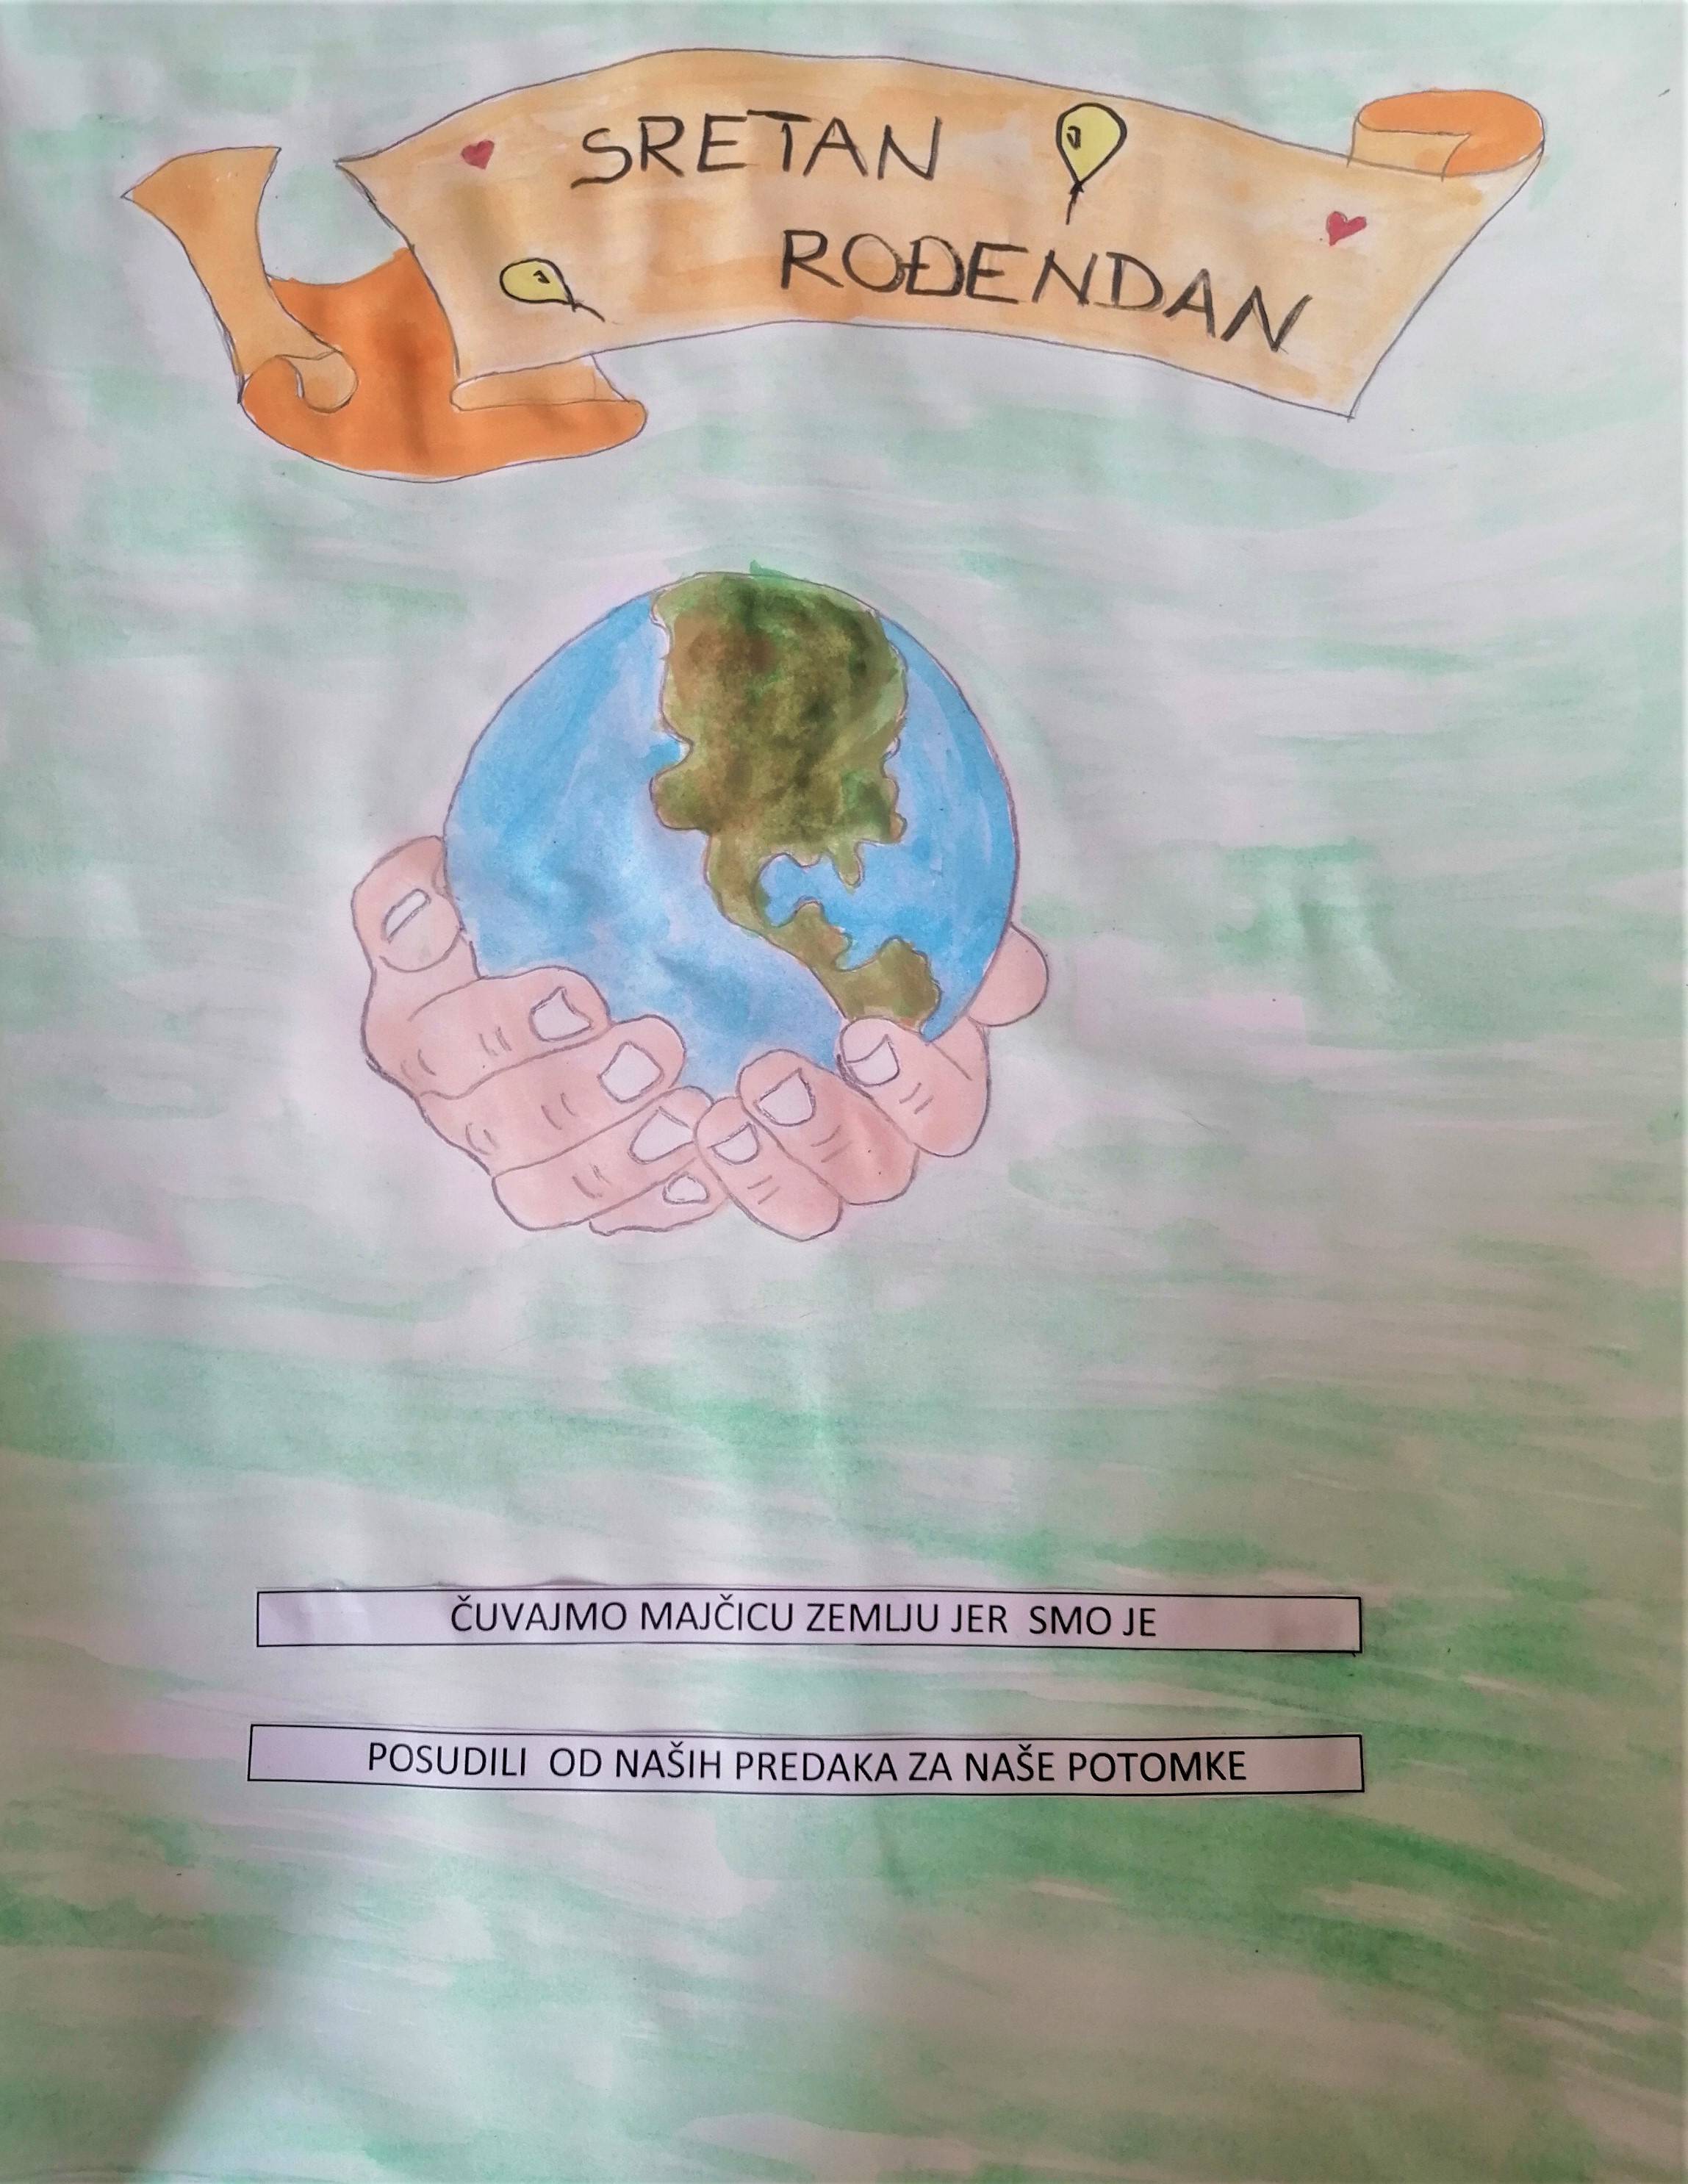 SRETAN
ROĐENDAN
ČUVAJMO MAJČICU ZEMLJU JER SMO JE
POSUDILI OD NAŠIH PREDAKA ZA NAŠE POTOMKE